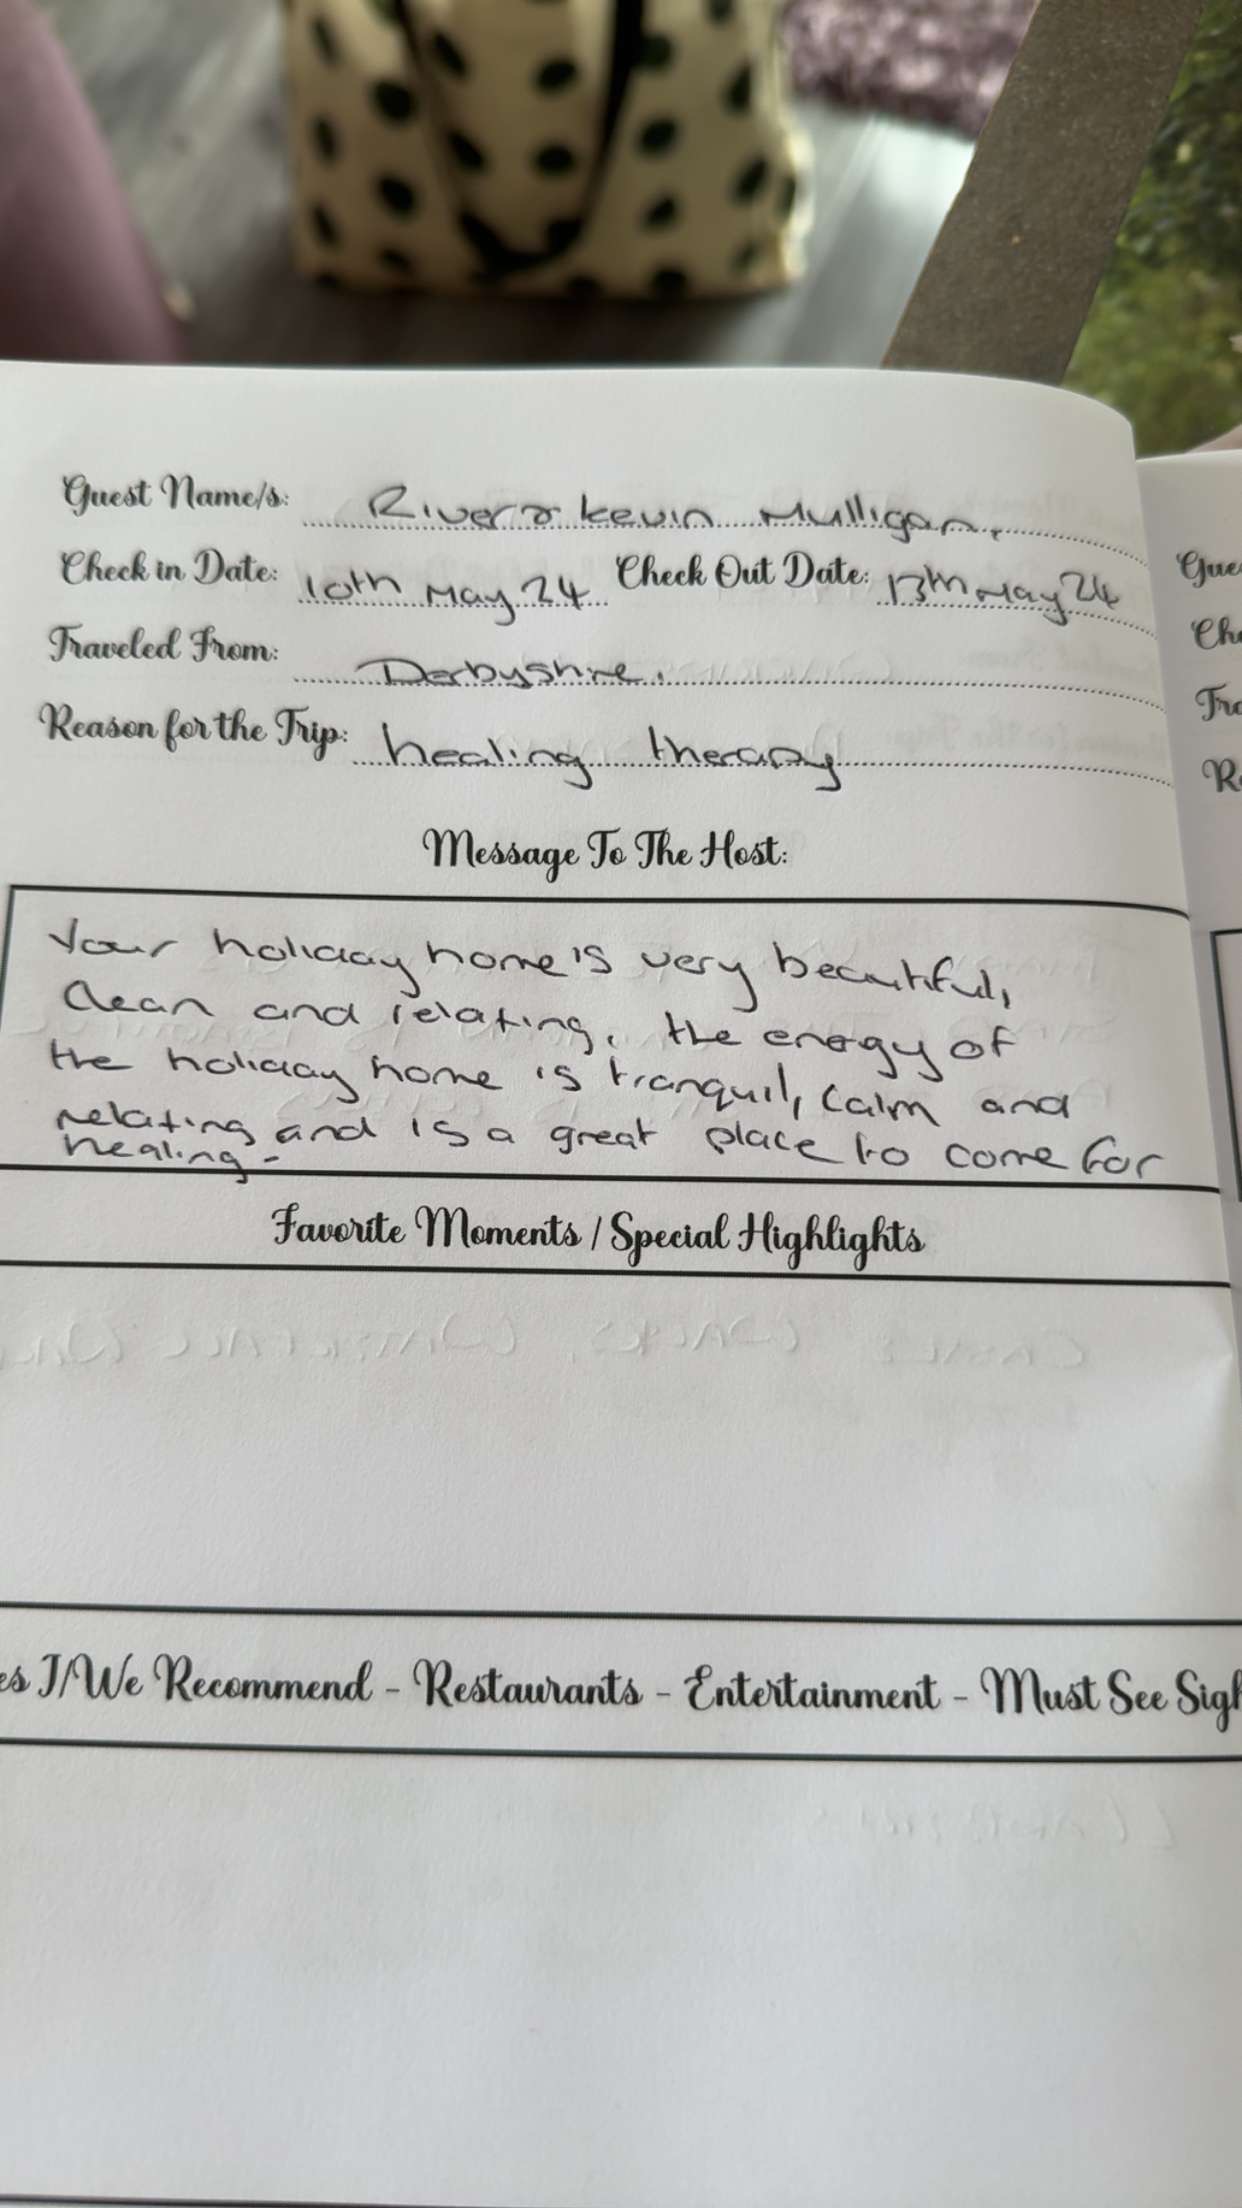 Guest Name/s: River & kevin Mulligan.
Check in Date: 10th May 24 Check Out Date: 13th May 24
Traveled From: Derbyshire.
Reason for the Trip: healing therapy
Message To The Host:
Your holiday home is very beautiful,
Clean and relating. the energy of
the holiday home is tranquil, calm and
relating and is a great place to come for
healing.
Favorite Moments / Special Highlights
es I/We Recommend - Restaurants - Entertainment - Must See Sigh
Gue
Che
Tra
Re